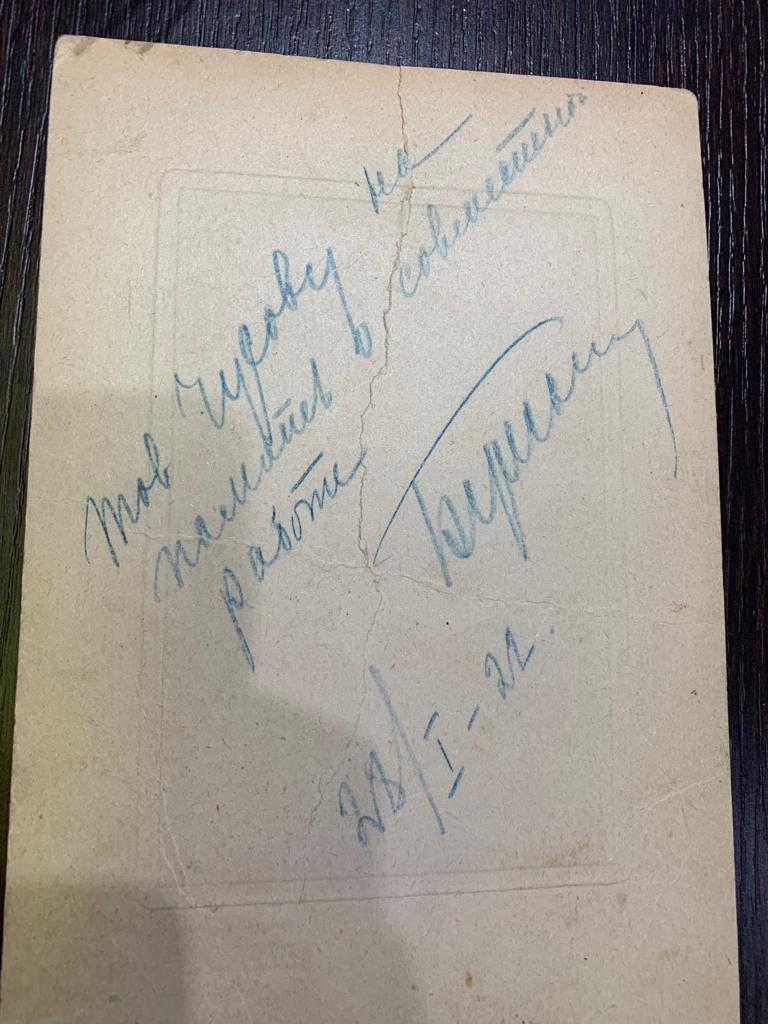 тов Чусову на
память о совместной
работе
Берман
28/I-22.